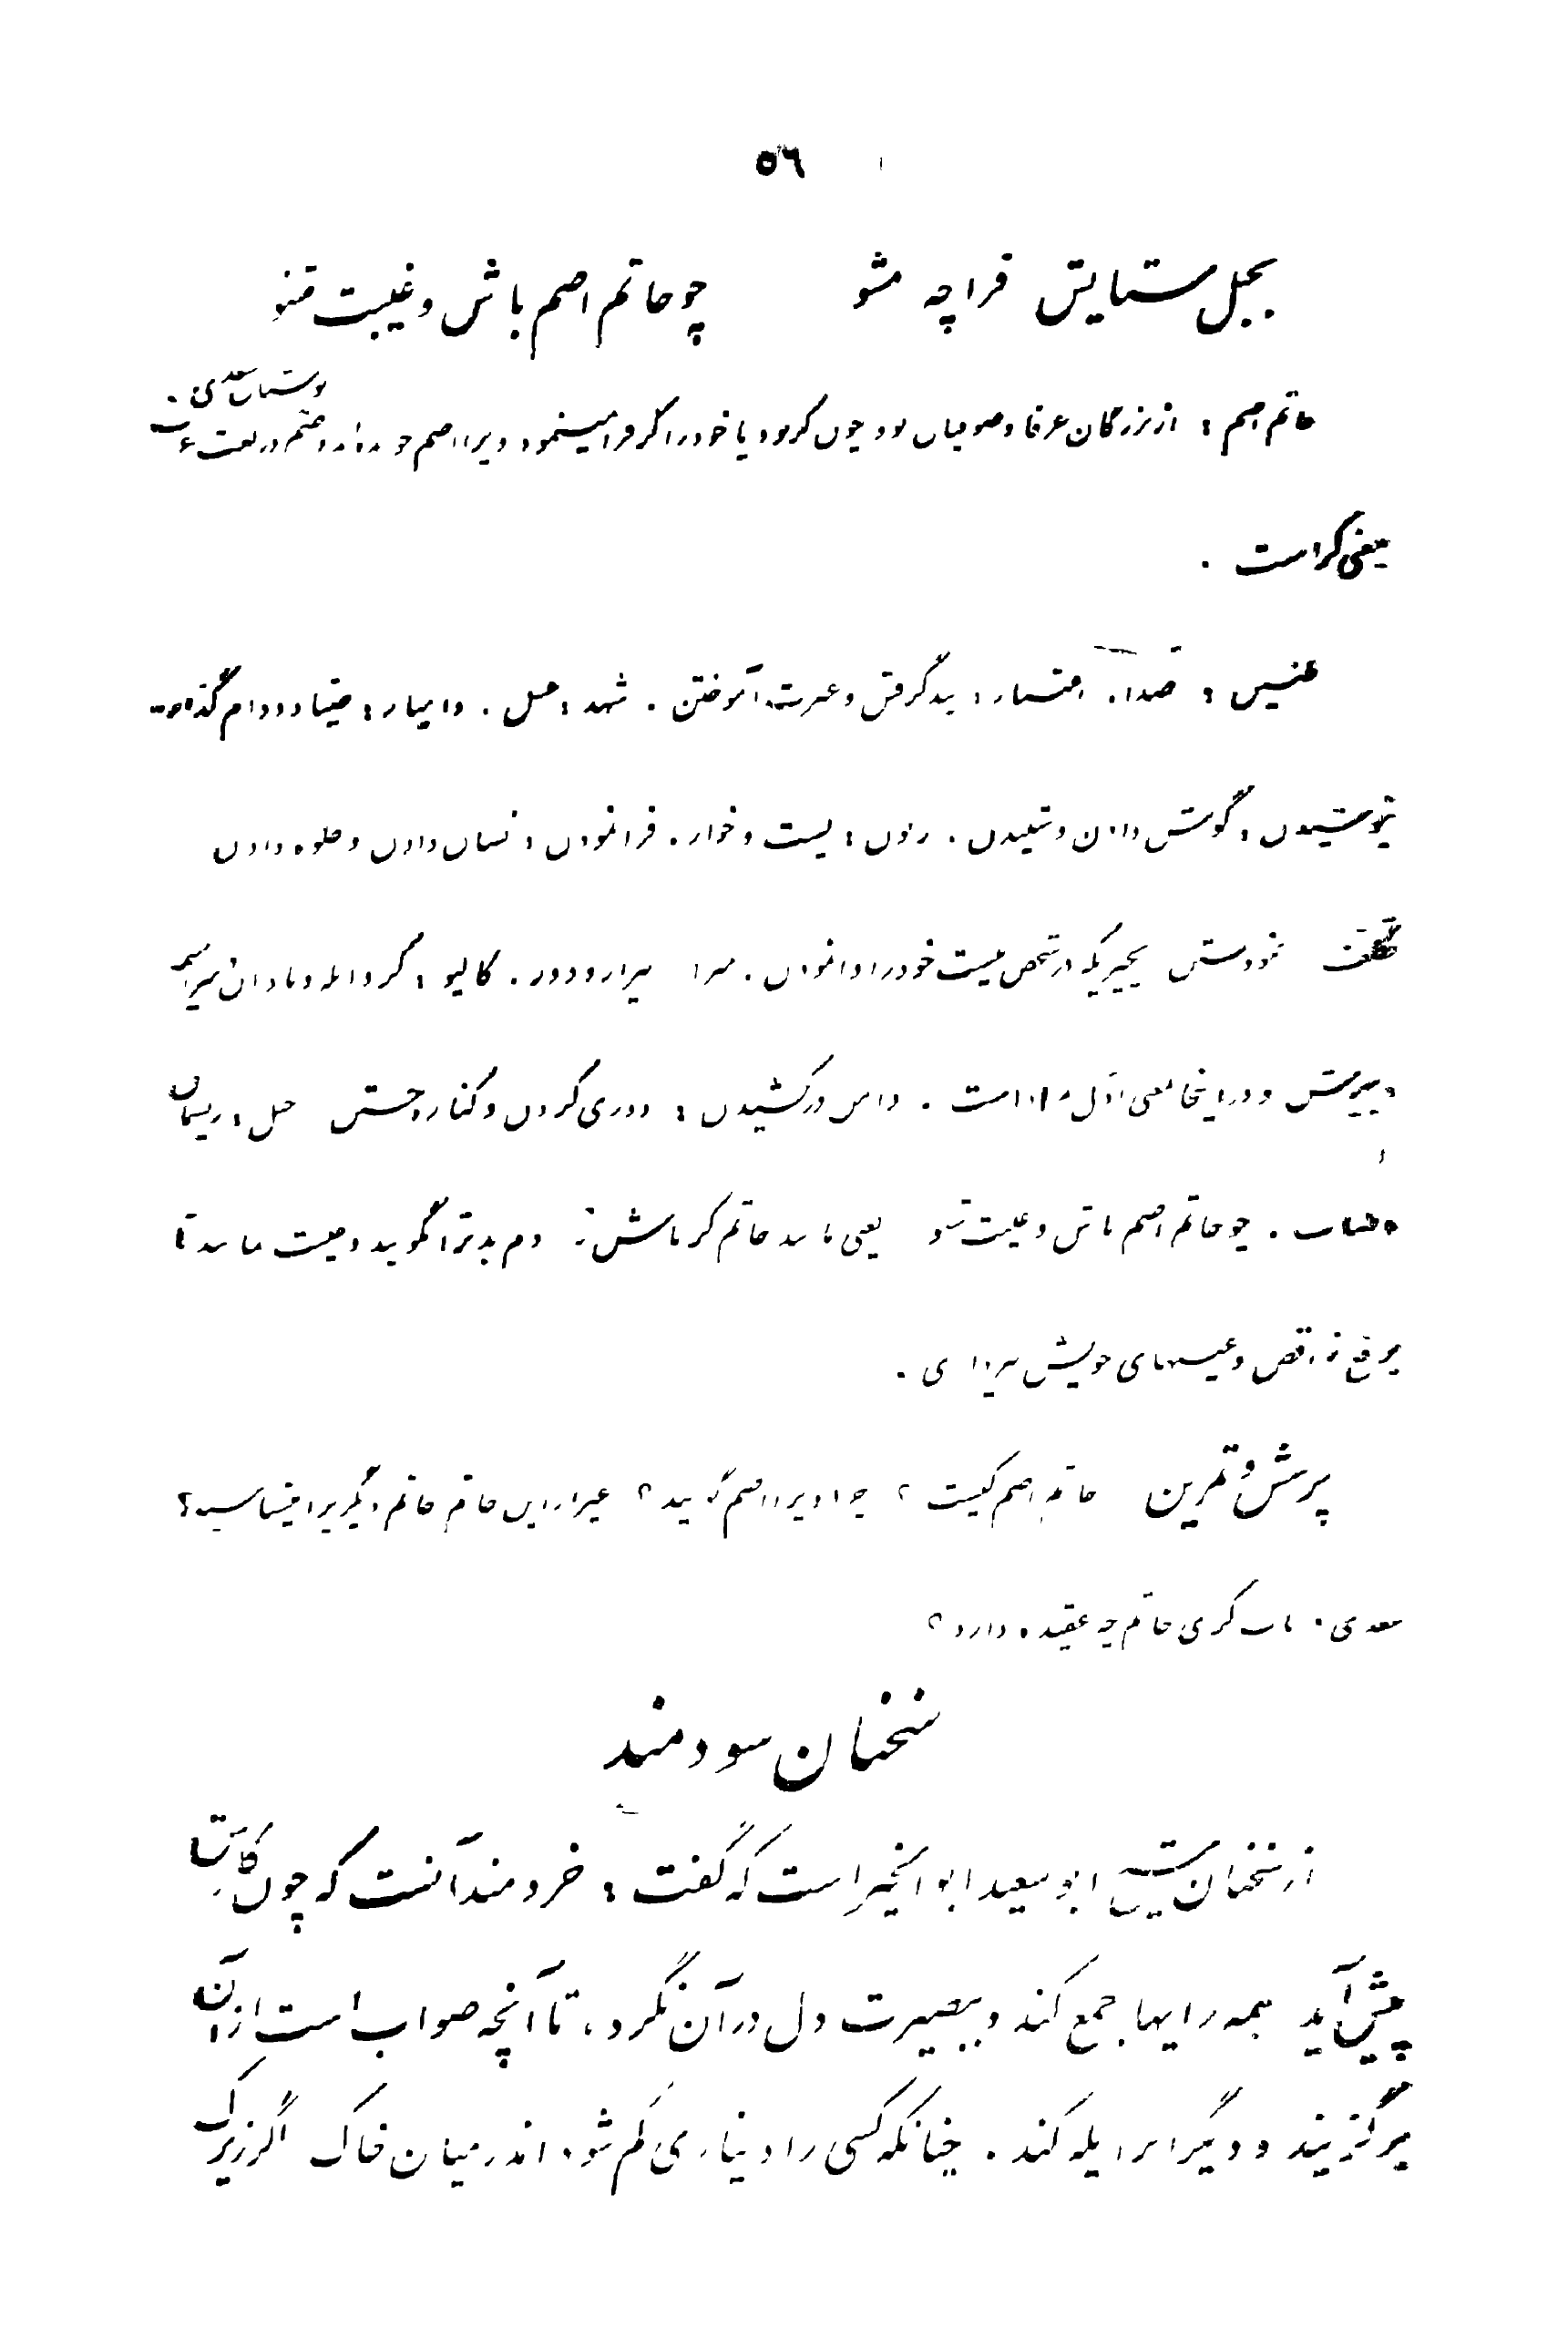 ٥٦
بحبل ستایش فراچه مشو چو حاتم اصم باش و غیبت شنو
بوستان سعدی .
حاتم اصم : از بزرگان عرفا و صوفیان بود چون کر بود یا خود را کر فرا مینمود ویرا اصم خوانده‌اند و اصم در لغت عرب
بمعنی کر است .
عنبس : صدا . اعتبار : پند گرفتن و عبرت آموختن . شهد : عسل . دامیار : صیاد و دام گذار
نیوشیدن : گوش دادن و شنیدن . زبون : پست و خوار . فرا نمودن : نشان دادن و جلوه دادن
خود را وانمودن . مبرا بیزار و دور . کالیو : کر و ابله و نادان
و بیهش و در اینجا معنی اول مراد است . دامن در کشیدن : دوری کردن و کناره جستن حبل : ریسمان
و طناب . چو حاتم اصم باش و غیبت شنو یعنی مانند حاتم کر باش تا مردم بد ترا گویند و غیبت نمایند تا
برفع نواقص و عیبهای خویش پردازی .
پرسش و تمرین حاتم اصم کیست ؟ چرا ویرا اصم گویند ؟ غیر از این حاتم حاتم دیگریرا میشناسید ؟
سعدی در باب کری حاتم چه عقیده دارد ؟
سخنان سودمند
از سخنان شیخ ابو سعید ابو الخیر است که گفت : خردمند آنست که چون کاریش
پیش آید همه رایها جمع کند و ببصیرت دل در آن نگرد ، تا آنچه صواب است از آن
برگزیند و دیگر را یله کند . چنانکه کسی را دیناری گم شود اندر میان خاک اگر زیرک